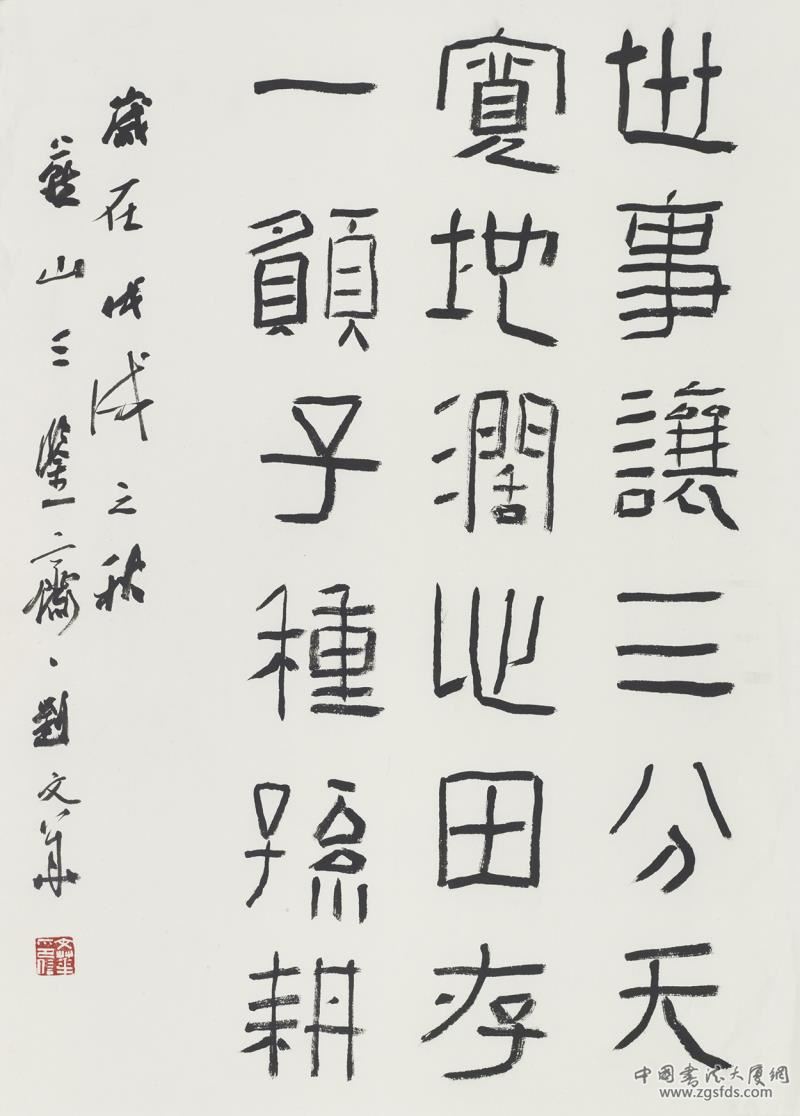 世事讓三分天
寬地濶心田存
一子種孫耕
歲在戊戌之秋
山三鑒齋劉文華
中國書法大廈網
www.zgsfds.com